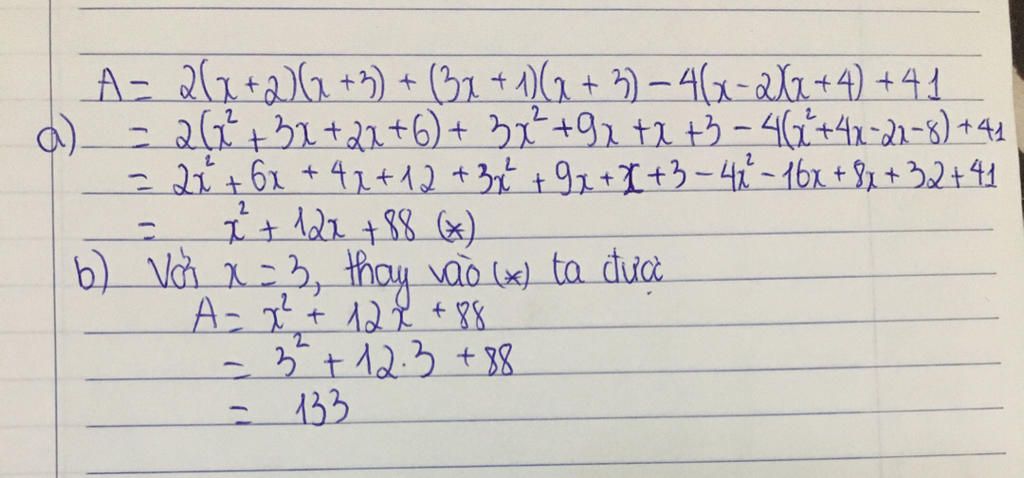 A = 2(x+2)(x+3) + (3x+1)(x+3) - 4(x-2)(x+4) + 41
a) = 2(x² + 3x + 2x + 6) + 3x² + 9x + x + 3 - 4(x² + 4x - 2x - 8) + 41
= 2x² + 6x + 4x + 12 + 3x² + 9x + x + 3 - 4x² - 16x + 8x + 32 + 41
= x² + 12x + 88 (*)
b) Với x = 3, thay vào (*) ta được
A = x² + 12x + 88
= 3² + 12.3 + 88
= 133